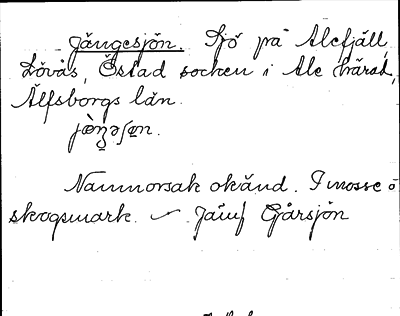 Jängesjön. Sjö på Alefjäll,
Lövås, Östad socken i Ale härad,
Älfsborgs län.
Namnorsak okänd. I mosse o
skogsmark. – Jämf Gårsjön